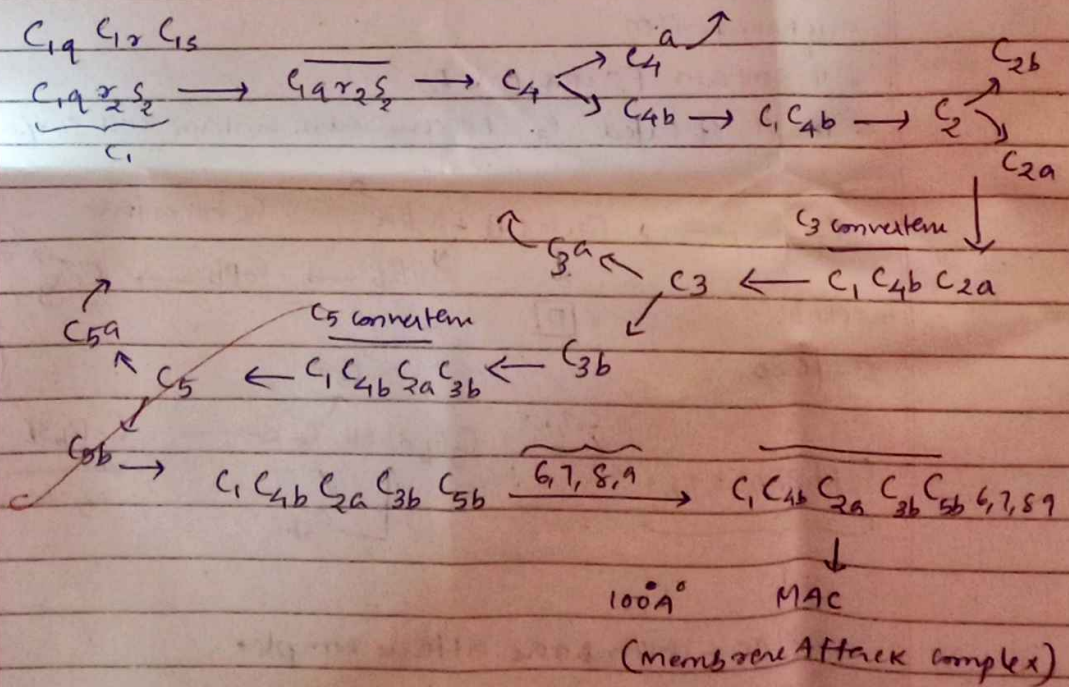 C1q C1r C1s
C1q r2 s2 → C1q r2 s2 → C4 → C4a
C4b → C1 C4b → C2 → C2b
C1
C2a
C3 convertem
C3a ← C3 ← C1 C4b C2a
C5a
C5 convertem
C5 ← C1 C4b C2a C3b ← C3b
C5b → C1 C4b C2a C3b C5b 6,7,8,9 → C1 C4b C2a C3b C5b 6,7,8 9
100A° MAC
(Membrane Attack complex)